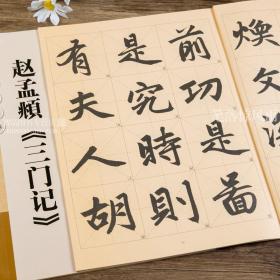 煥文
前功是啚
是究時則
有夫人胡
赵孟頫《三门记》